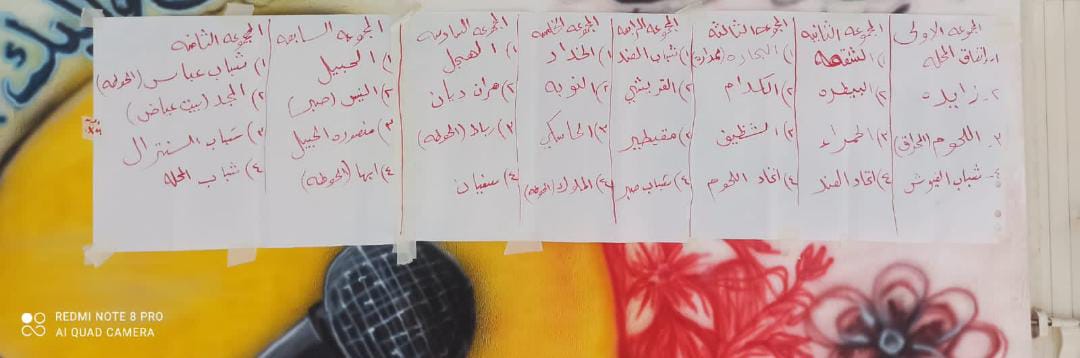 المجموعه الاولى
١- اتفاق الحله
٢- زايده
٣- اللحوم (العراق)
٤- شباب الفيوش
المجموعه الثانيه
١) الشقعه
٢) البيطره
٣) الحمراء
٤) اتحاد الهند
المجموعه الثالثه
٢) الكدام
٣) الشظيف
٤) اتحاد اللحوم
المجموعه الرابعه
١) شباب الهند
٢) القريشي
٣) مقيطير
٤) شباب صبر
المجموعه الخامسه
١) الحداد
٢) النوبه
٤) الملوك (الحوطه)
المجموعه السادسه
١) الهيجل
٢) مران دبان
٣) رباط (الحوطه)
٤) سفيان
المجموعه السابعه
١) الحبيل
٢) النيس (صبر)
٣) منصوره الحبيل
٤) ابها (الحوطه)
المجموعه الثامنه
١) شباب عباس (الحوطه)
٢) المجد (بيت عياض)
٣) شباب السنترال
٤) شباب الحله
REDMI NOTE 8 PRO
AI QUAD CAMERA